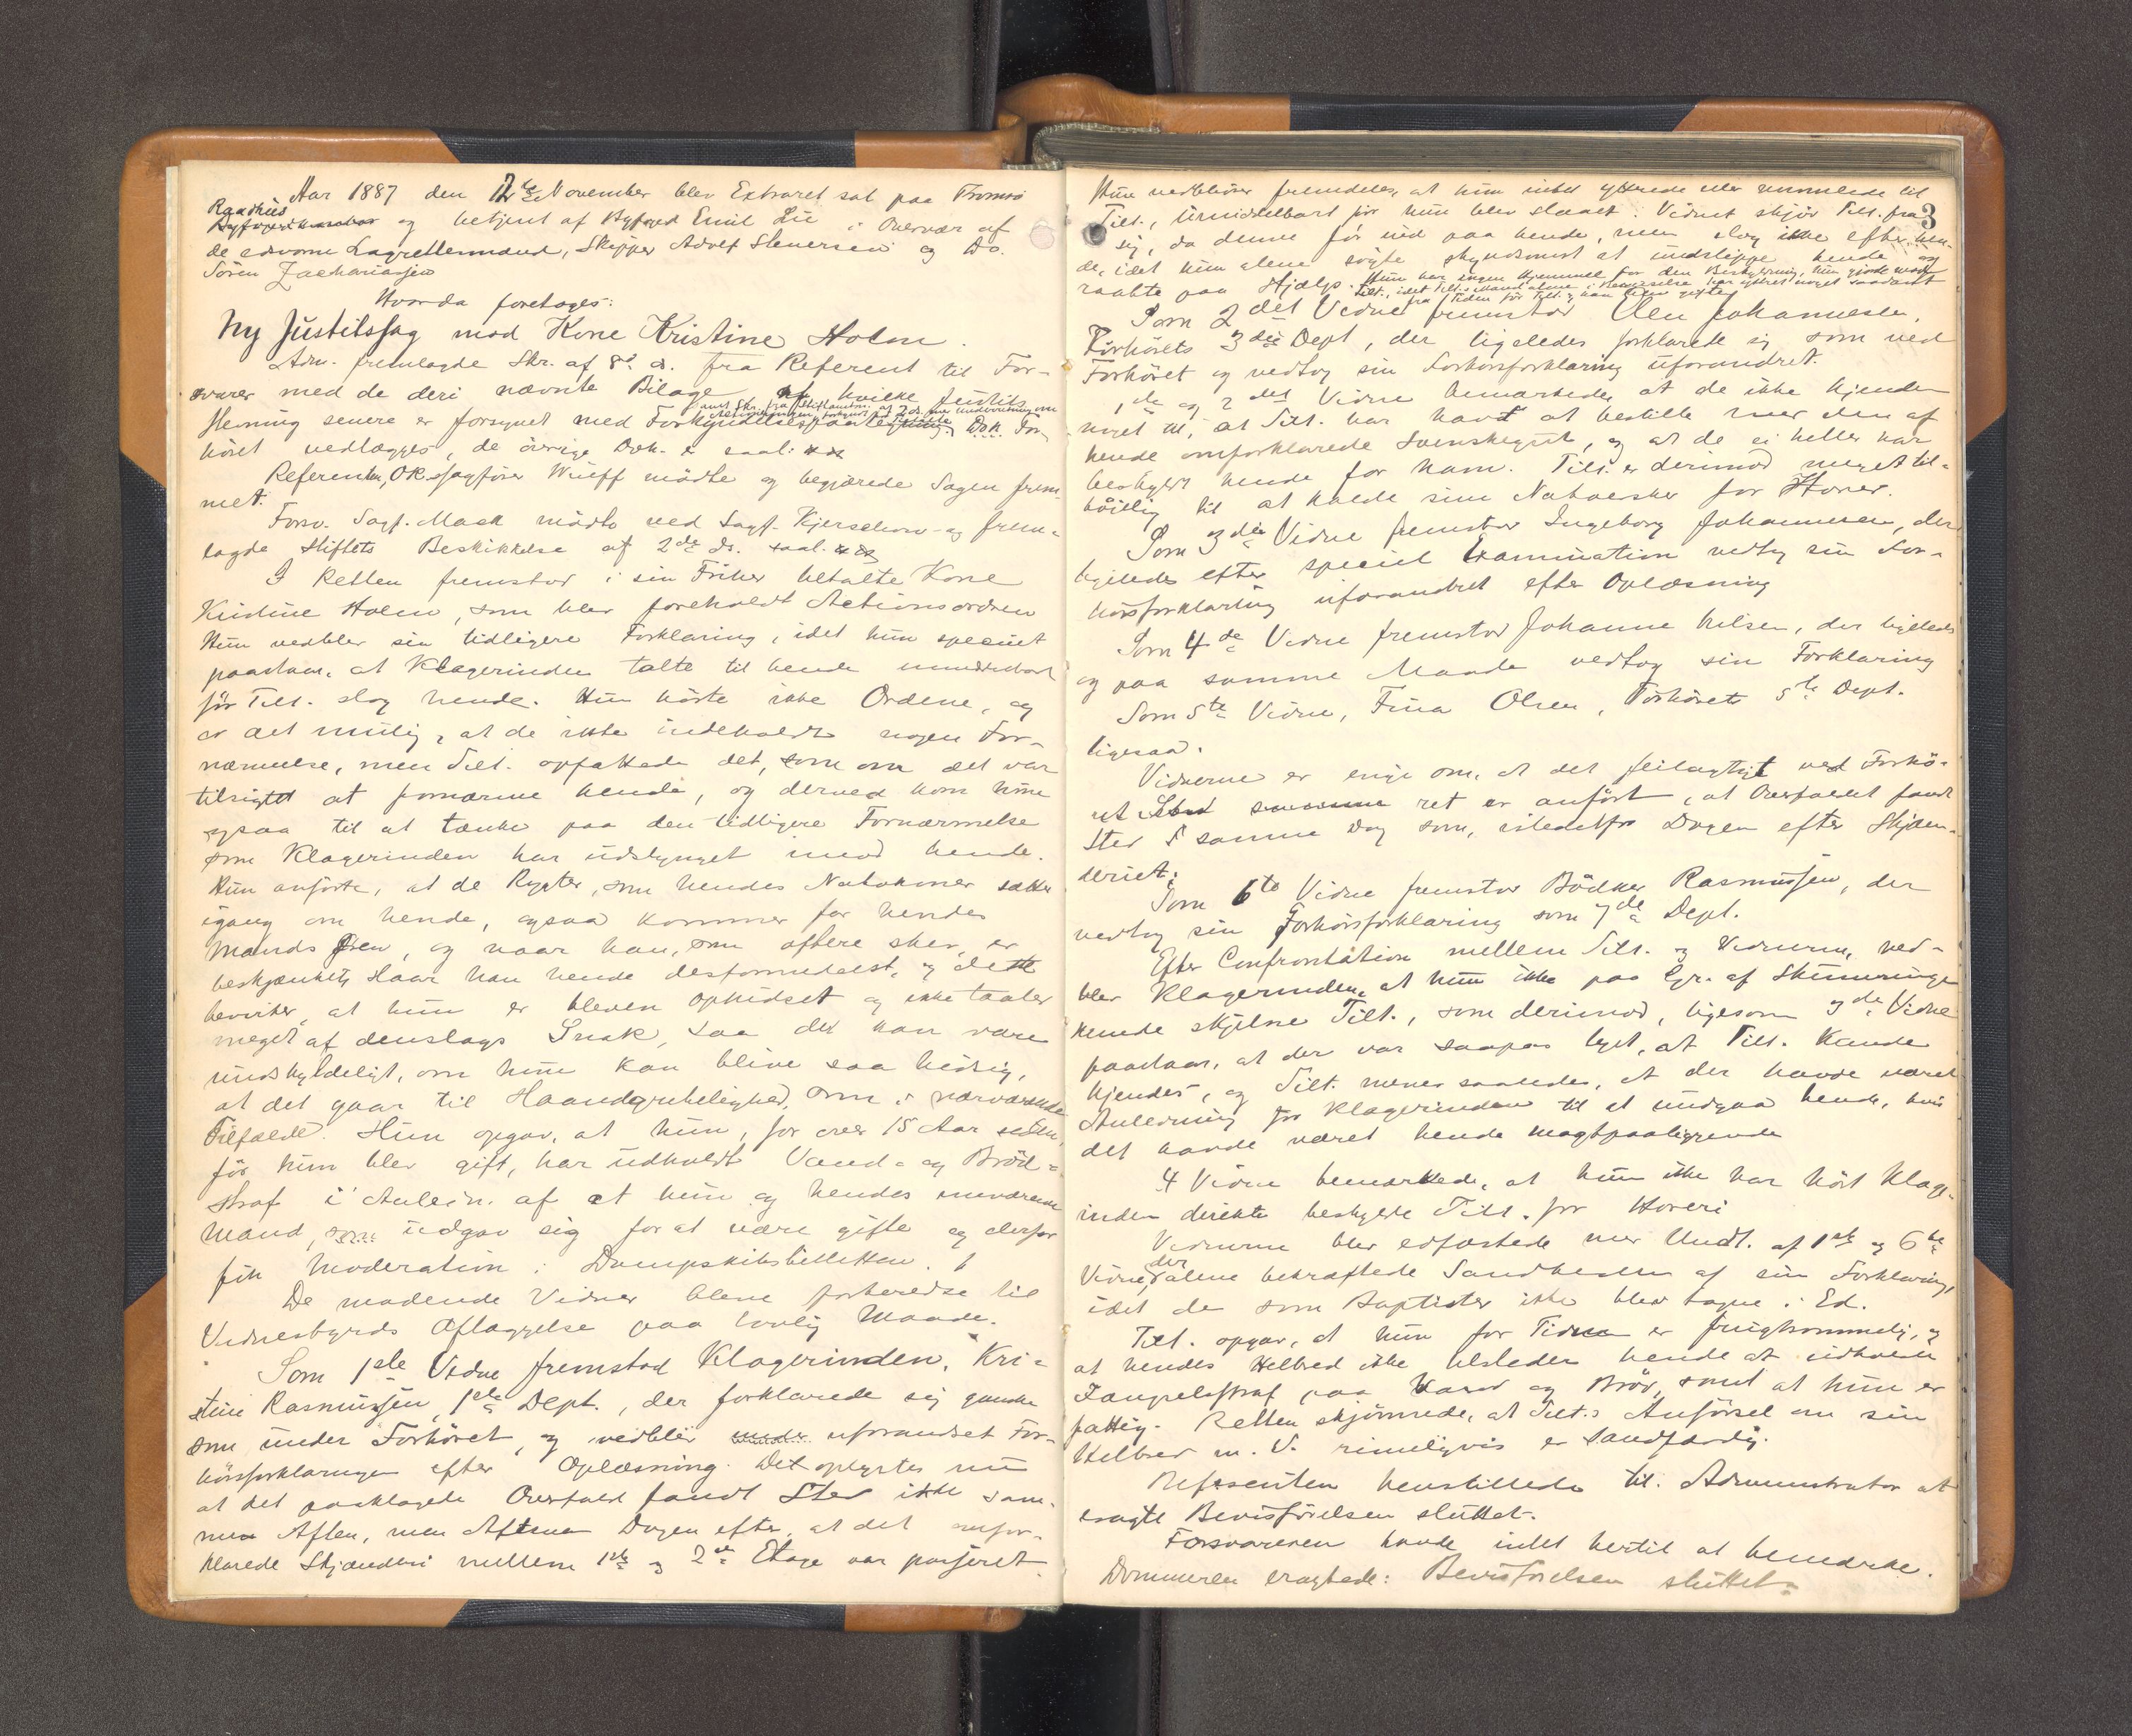 Aar 1887 den 12te November blev Extraret sat paa Tromsö
Raadhus
Byfogedkontor og betjent af Byfoged Emil Lie i Overvær af
de edsvorne Lagrettemænd, Skipper Adolf Steversen og Do.
Sören Zachariassen
Hvorda foretoges:
Ny Justitssag mod Kone Kristine Holm.
Adm. fremlagde Skr. af 8de ds. fra Referent til For-
svarer med de deri nævnte Bilage af hvilke Justits
samt Skr. fra Stiftamtm. af 2 ds. med Underretning om
Stevning senere er forsynet med Forkyndelsespaategning. Dok. For-
höret vedlægges, de övrige Dok. er saal:
Referenten, OR.sagförer Wulff mödte og begjærede Sagen frem-
met.
Forsv. Sagf. Mack mödte ved Sagf. Kjerschow og frem-
lagde Stiftets Beskikkelse af 2de ds. saal.
I Retten fremstod i sin Frihed tiltalte Kone
Kristine Holm, som blev foreholdt Actionsordren
Hun vedblev sin tidligere Forklaring, idet hun specielt
paastaar, at Klagerinden talte til hende umiddelbart
för Tilt. slog hende. Hun hörte ikke Ordene, og
er det mulig, at de ikke indeholdt nogen For-
nærmelse, men Tilt. opfattede det, som om det var
tilsigtet at fornærme hende, og derved kom hun
ogsaa til at tænke paa den tidligere Fornærmelse
som Klagerinden har udslynget mod hende.
Hun anförte, at de Rygter, som hendes Nabokoner sætter
igang om hende, ogsaa kommer for hendes
Mands Ören, og naar han, som oftere sker, er
beskjænket, slaar han hende desformedelst, og dette
bevirker, at hun er bleven ophidset og ikke taaler
meget af denslags Snak, saa det kan være
undskyldeligt, om hun kan blive saa hidsig,
at det gaar til Haandgribelighed, som i nærværende
Tilfælde. Hun opgav, at hun, for over 15 Aar siden,
för hun blev gift, har udholdt Vand- og Bröd-
straf i Anledn. af at hun og hendes nuværende
Mand, som udgav sig for at være gifte og derfor
fik Moderation i Dampskibsbilletten.
De mödende Vidner bleve forberedte til
Vidnesbyrds Aflæggelse paa lovlig Maade.
Som 1ste Vidne fremstod Klagerinden, Kri-
stine Rasmussen, 1ste Dept., der forklarede sig ganske
som under Forhöret, og vedblev uforandret For-
hörsforklaringen efter Oplæsning. Det oplystes nu
at det paaklagede Overfald fandt Sted ikke sam-
me Aften, men Aftenen Dagen efter, at det omfor-
klarede Skjænderi mellem 1ste og 2den Etage var passeret.
3
Hun vedbliver fremdeles, at hun intet yttrede eller mumlede til
Tilt., umiddelbart för hun blev slaaet. Vidnet skjöv Tilt. fra
sig, da denne för ind paa hende, men slog ikke efter hen-
de, idet hun alene sögte skyndsomst at undslippe hende og
raabte paa Hjælp. Hun har ingen Hjemmel for den Beskyldning, hun gjorde mod
Tilt., idet Tilt.s Mand alene i Beruselse har yttret noget saadant
fra Tiden för Tilt. og han blev gifte
Som 2det Vidne fremstod Oleu Johannesen,
Forhörets 3die Dept, der ligeledes forklarede sig som ved
Forhöret og vedtog sin Forhörsforklaring uforandret.
1ste og 2det Vidne bemærkede, at de ikke kjender
noget til, at Tilt. har havt at bestille med den af
hende omforklarede Svenskegut, og at de ei heller har
beskyldt hende for ham. Tilt. er derimod meget til-
böielig til at kalde sine Nabersker for Horer.
Som 3die Vidne fremstod Ingeborg Johannesen, der
ligeledes efter speciel Examination vedtog sin For-
hörsforklaring uforandret efter Oplæsning
Som 4de Vidne fremstod Johanne Nilsen, der ligeledes
og paa samme Maade vedtog sin Forklaring
Som 5te Vidne, Fina Olsen, Forhörets 5te Dept.
ligesaa.
Vidnerne er enige om, at det feilagtigt ved Forhö-
ret er anfört, at Overfaldet fandt
Sted samme Dag som, istedetfor Dagen efter Skjæn-
deriet.
Som 6te Vidne fremstod Bödker Rasmussen, der
vedtog sin Forhörsforklaring som 7de Dept.
Efter Confrontation mellem Tilt. og Vidnerne, ved-
blev Klagerinden, at hun ikke paa Gr. af Skumringen
kunde skjelne Tilt., som derimod, ligesom 3die Vidne
paastaar, at der var saapas lyst, at Tilt. kunde
kjendes, og Tilt. mener saaledes, at der havde været
Anledning for Klagerinden til at undgaa hende, hvis
det havde været hende magtpaaliggende
4 Vidne bemærkede, at hun ikke har hört Klage-
inden direkte beskylde Tilt. for Horeri
Vidnerne blev edfæstede med Undt. af 1ste og 6te
Vidne, der alene bekræftede Sandheden af sin Forklaring,
idet de som Baptister ikke blev tagne i Ed.
Tilt. opgav, at hun for Tiden er frugtsommelig, og
at hendes Helbred ikke tilsteder hende at udholde
Fængselsstraf paa Vand og Bröd, samt at hun er
fattig. Retten skjönnede, at Tilt.s Anförsel om sin
Helbred m. V. rimeligvis er sandfærdig.
Referenten henstillede til Administrator at
eragte Bevisförelsen sluttet.
Forsvareren havde intet hertil at bemærke.
Dommeren eragtede: Bevisförelsen sluttet.